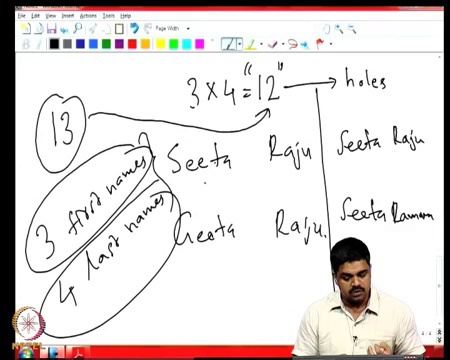 File Edit View Insert Actions Tools Help
Page Width
3 x 4 = "12" → holes
13
3 first names
4 last names
Seeta Raju
Geeta Raju.
Seeta Raju
Seeta Ramana